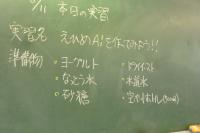 9/11 本日の実習
実習名 えひめAiを作ってみよう!!
準備物 ・ヨーグルト ・ドライイースト
・なっとう水 ・水道水
・砂糖 ・空ペットボトル(500ml)